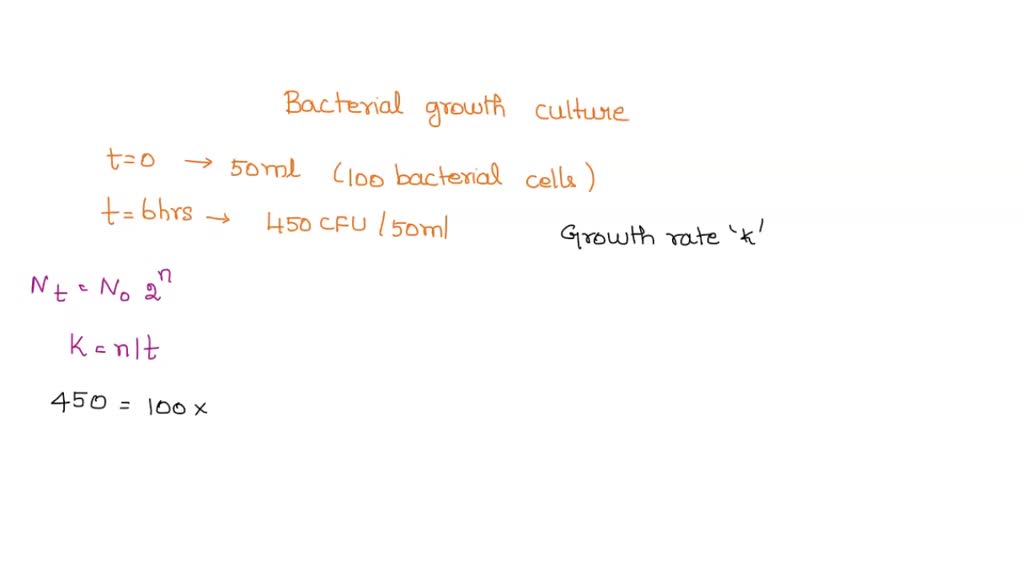 Bacterial growth culture
t=0 → 50ml (100 bacterial cells)
t=6hrs → 450 CFU / 50ml
Growth rate 'k'
Nt = No 2^n
K = n/t
450 = 100 x